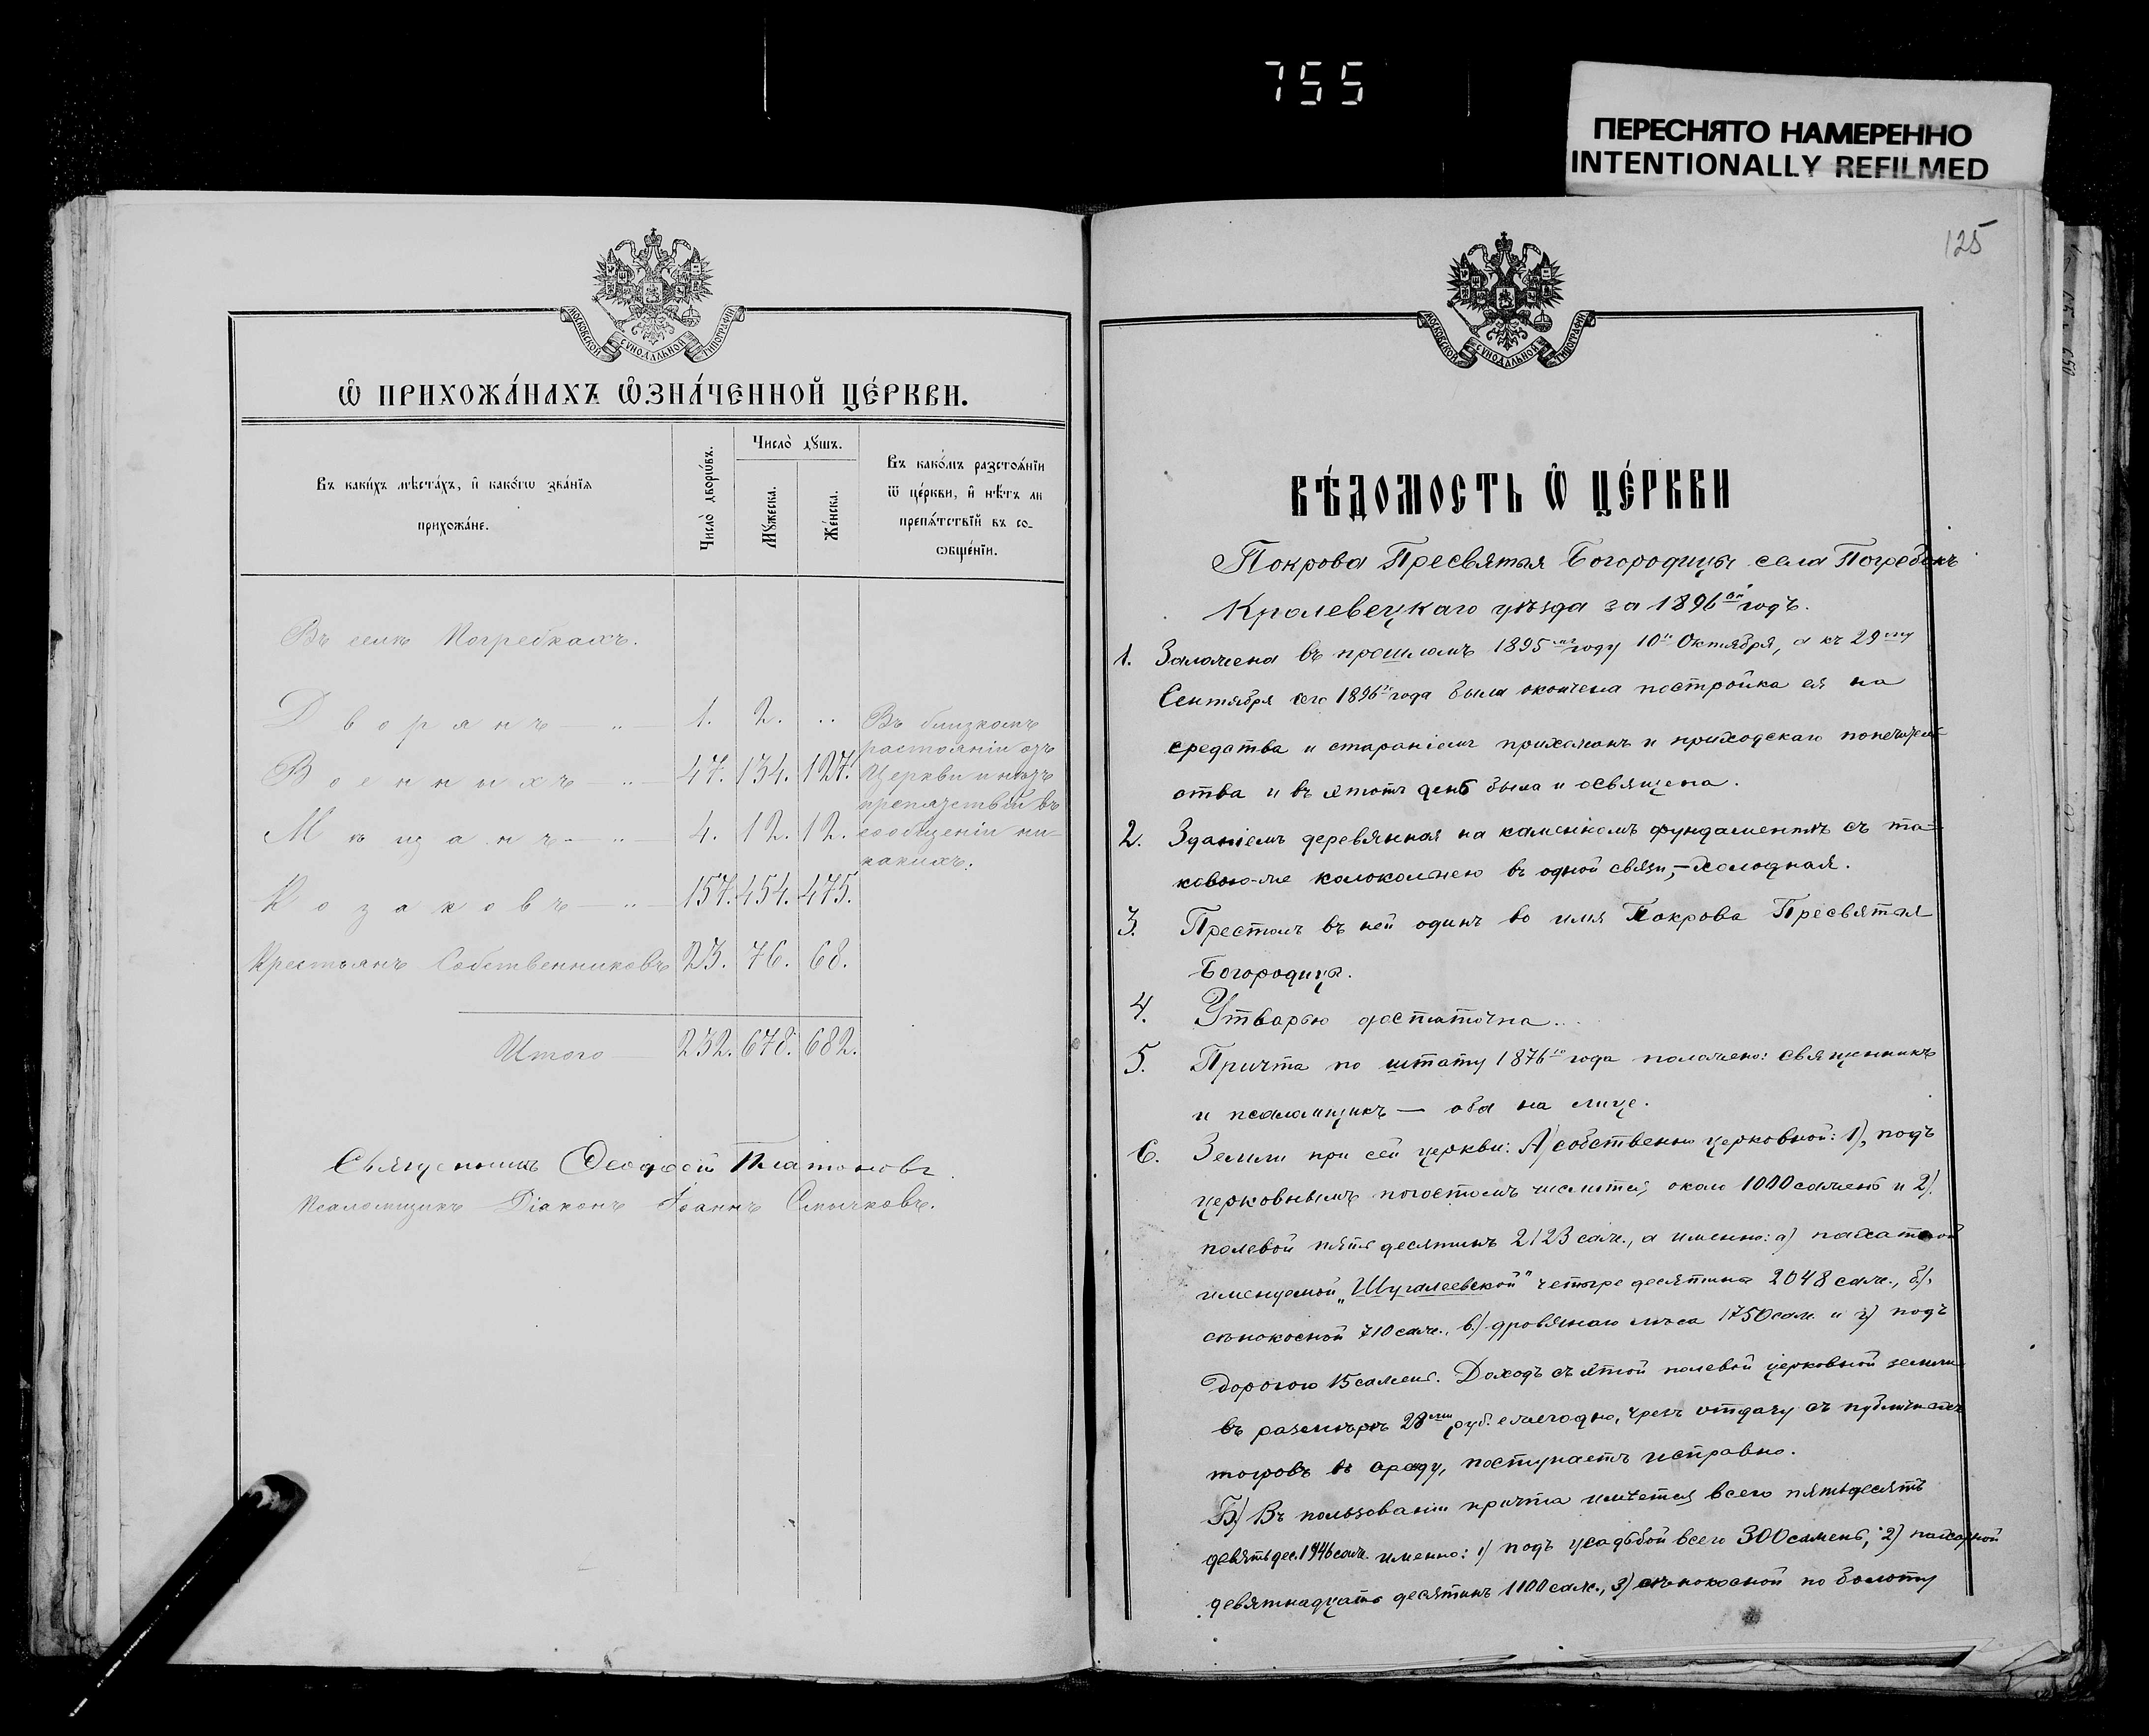 755
ПЕРЕСНЯТО НАМЕРЕННО
INTENTIONALLY REFILMED
125
МОСКОВСКОЙ СѴНОДАЛЬНОЙ ТИПОГРАФІИ
Ѡ ПРИХОЖА́НАХЪ ѠЗНА́ЧЕННОЙ ЦЕ́РКВИ.
Въ каки́хъ мѣста́хъ, и҆ како́гѡ зва́нїѧ
прихожа́не.
Число̀ дворѡ́въ.
Число̀ дꙋшъ.
Мꙋ́жеска.
Же́нска.
Въ како́мъ разстоѧ́нїи
ѿ це́ркви, и҆ нѣ́тъ ли
препѧ́тствїй въ со-
ѻбще́нїи.
Въ селѣ Погребкахъ.
Дворянъ — „ — 1. 2. ..
Военныхъ — „ — 47. 134. 127.
Мѣщанъ — „ — 4. 12. 12.
Козаковъ — „ — 157. 454. 475.
Крестьянъ Собственниковъ 23. 76. 68.
Въ близкомъ
растояніи отъ
Церкви и нѣтъ
препятствій въ
сообщеніи ни-
какихъ.
Итого — 232. 678. 682.
Священникъ Ѳеодосій Платоновъ
Псаломщикъ Діаконъ Іоаннъ Смычковъ.
МОСКОВСКОЙ СѴНОДАЛЬНОЙ ТИПОГРАФІИ
ВѢ́ДОМОСТЬ Ѡ ЦЕ́РКВИ
Покрова Пресвятыя Богородицы села Погребокъ
Кролевецкаго уѣзда за 1896ой годъ.
1. Заложена въ прошломъ 1895мъ году 10го Октября, а къ 29му
Сентября сего 1896го года была окончена постройка ея на
средства и стараніемъ прихожанъ и приходскаго попечитель-
ства и въ этотъ день была и освящена.
2. Зданіемъ деревянная на каменномъ фундаментѣ съ та-
ковою-же колокольнею въ одной связи, – холодная.
3. Престолъ въ ней одинъ во имя Покрова Пресвятыя
Богородицы.
4. Утварью достаточна...
5. Причта по штату 1876го года положено: священникъ
и псаломщикъ — оба на лице.
6. Земли при сей церкви: А) собственно церковной: 1), подъ
церковнымъ погостомъ числится, около 1000 сажень и 2).
полевой пять десятинъ 2123 саж., а именно: а) пахатной
именуемой „Шугалеевской" четыре десятины 2048 саж., б).
сѣнокосной 710 саж., в.) дровянаго лѣса 1750 саж. и г) подъ
дорогою 15 сажень. Доходъ съ этой полевой церковной земли
въ размѣрѣ 28ми руб. ежегодно, чрезъ отдачу съ публичныхъ
торговъ въ аренду, поступаетъ исправно.
Б) Въ пользованіи причта имѣется всего пятьдесятъ
девять дес. 1946 саж. именно: 1) подъ усадьбой всего 300 сажень, 2) пахатной
девятнадцать десятинъ 1100 саж., 3) сѣнокосной по болоту